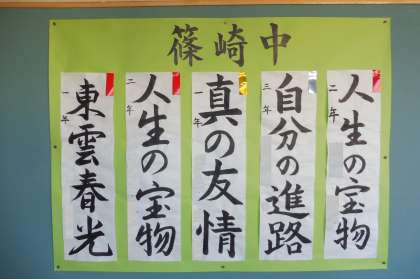 篠崎中
二年
人生の宝物
三年
自分の進路
一年
真の友情
二年
人生の宝物
一年
東雲春光